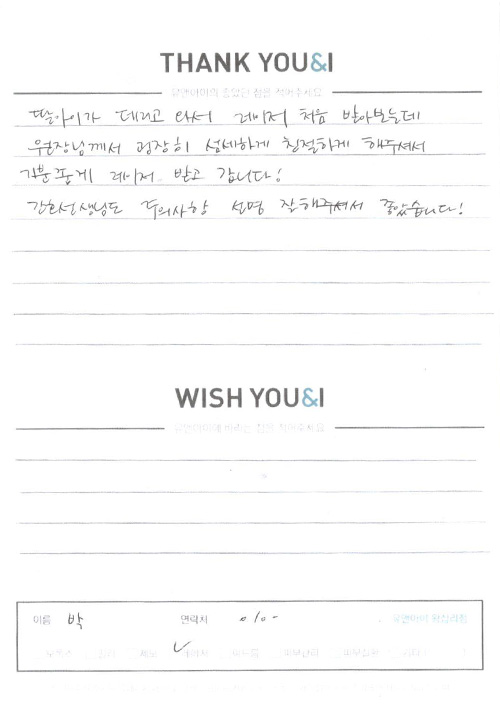 THANK YOU&I
유앤아이의 좋았던 점을 적어주세요
딸아이가 데리고 와서 레이저 처음 받아보는데
원장님께서 굉장히 섬세하게 친절하게 해주셔서
기분좋게 레이저 받고 갑니다!
간호선생님도 주의사항 설명 잘해주셔서 좋았습니다!
WISH YOU&I
유앤아이에 바라는 점을 적어주세요
이름 박 연락처 010-
보톡스 필러 제모 레이저 여드름 피부관리